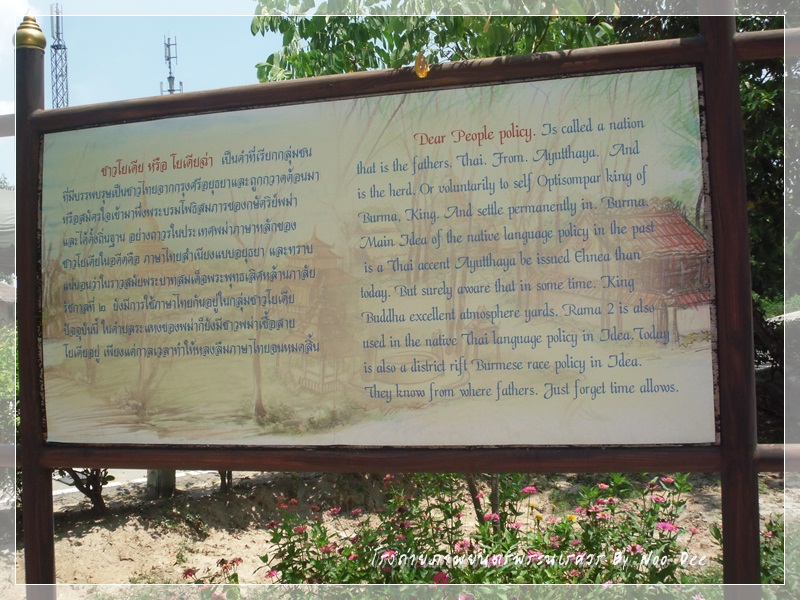 ชาวโยเดีย หรือ โยเดียล่า เป็นคำที่เรียกกลุ่มชน
ที่มีบรรพบุรุษเป็นชาวไทยจากกรุงศรีอยุธยาและถูกกวาดต้อนมา
หรือสมัครใจเข้ามาพึ่งพระบรมโพธิสมภารของกษัตริย์พม่า
และได้ตั้งถิ่นฐาน อย่างถาวรในประเทศพม่าภาษาหลักของ
ชาวโยเดียในอดีตคือ ภาษาไทยสำเนียงแบบอยุธยา และทราบ
แน่นอนว่าในราวสมัยพระบาทสมเด็จพระพุทธเลิศหล้านภาลัย
รัชกาลที่ ๒ ยังมีการใช้ภาษาไทยกันอยู่ในกลุ่มชาวโยเดีย
ปัจจุบันนี้ ในตำบลระแหงของพม่าก็ยังมีชาวพม่าเชื้อสาย
โยเดียอยู่ เพียงแต่กาลเวลาทำให้หลงลืมภาษาไทยจนหมดสิ้น
Dear People policy. Is called a nation
that is the fathers, Thai. From. Ayutthaya. And
is the herd. Or voluntarily to self Optisompar king of
Burma, King. And settle permanently in. Burma.
Main Idea of the native language policy in the past
is a Thai accent Ayutthaya be issued Ehnea than
today. But surely aware that in some time. King
Buddha excellent atmosphere yards. Rama 2 is also
used in the native Thai language policy in Idea.Today
is also a district rift Burmese race policy in Idea.
They know from where fathers. Just forget time allows.
โรงถ่ายภาพยนตร์พระนเรศวร By Noo Dee